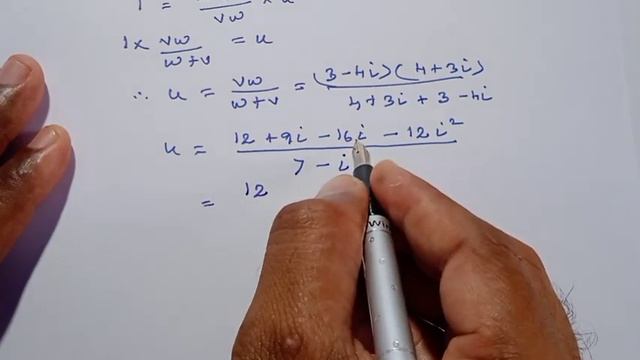 1 = ── / vw × u
1 × vw / w+v = u
∴ u = vw / w+v = (3-4i)(4+3i) / 4+3i+3-4i
u = 12+9i-16i-12i² / 7-i
= 12
WIN